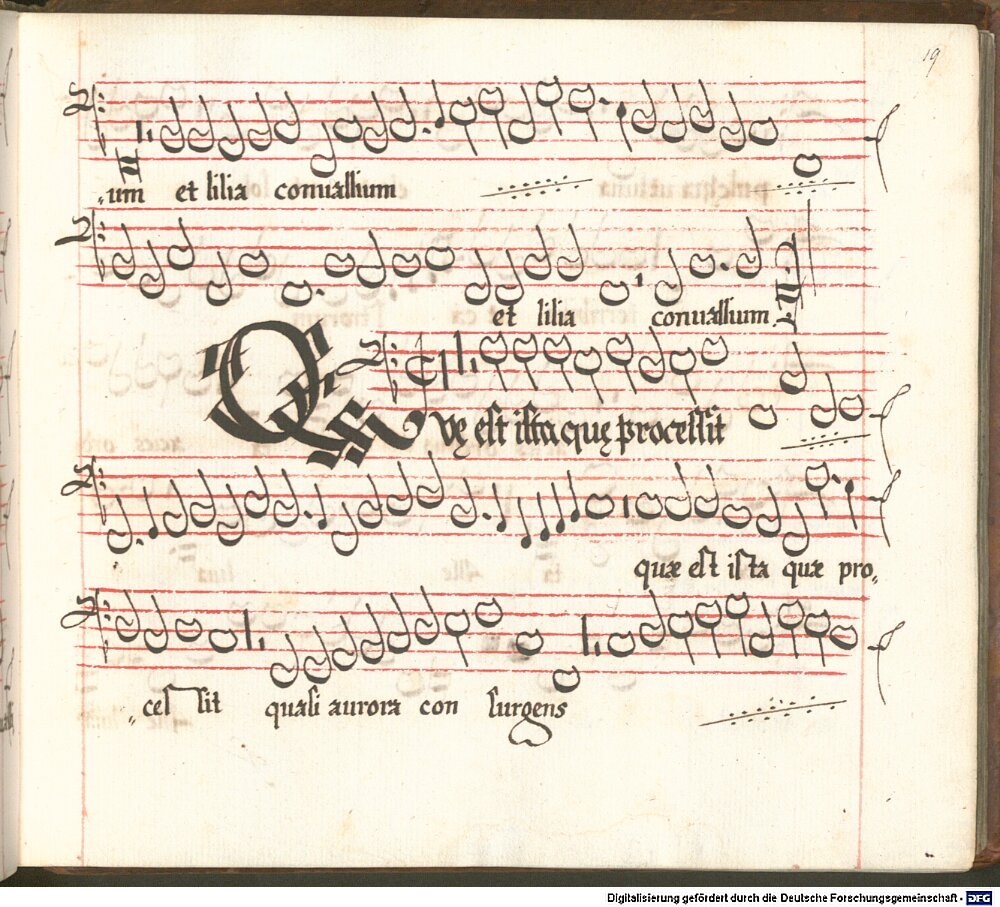 19
um et lilia conuallium
et lilia conuallium
Qvę est ista quę processit
quæ est ista quæ pro
ces sit quasi aurora con surgens
Digitalisierung gefördert durch die Deutsche Forschungsgemeinschaft - DFG